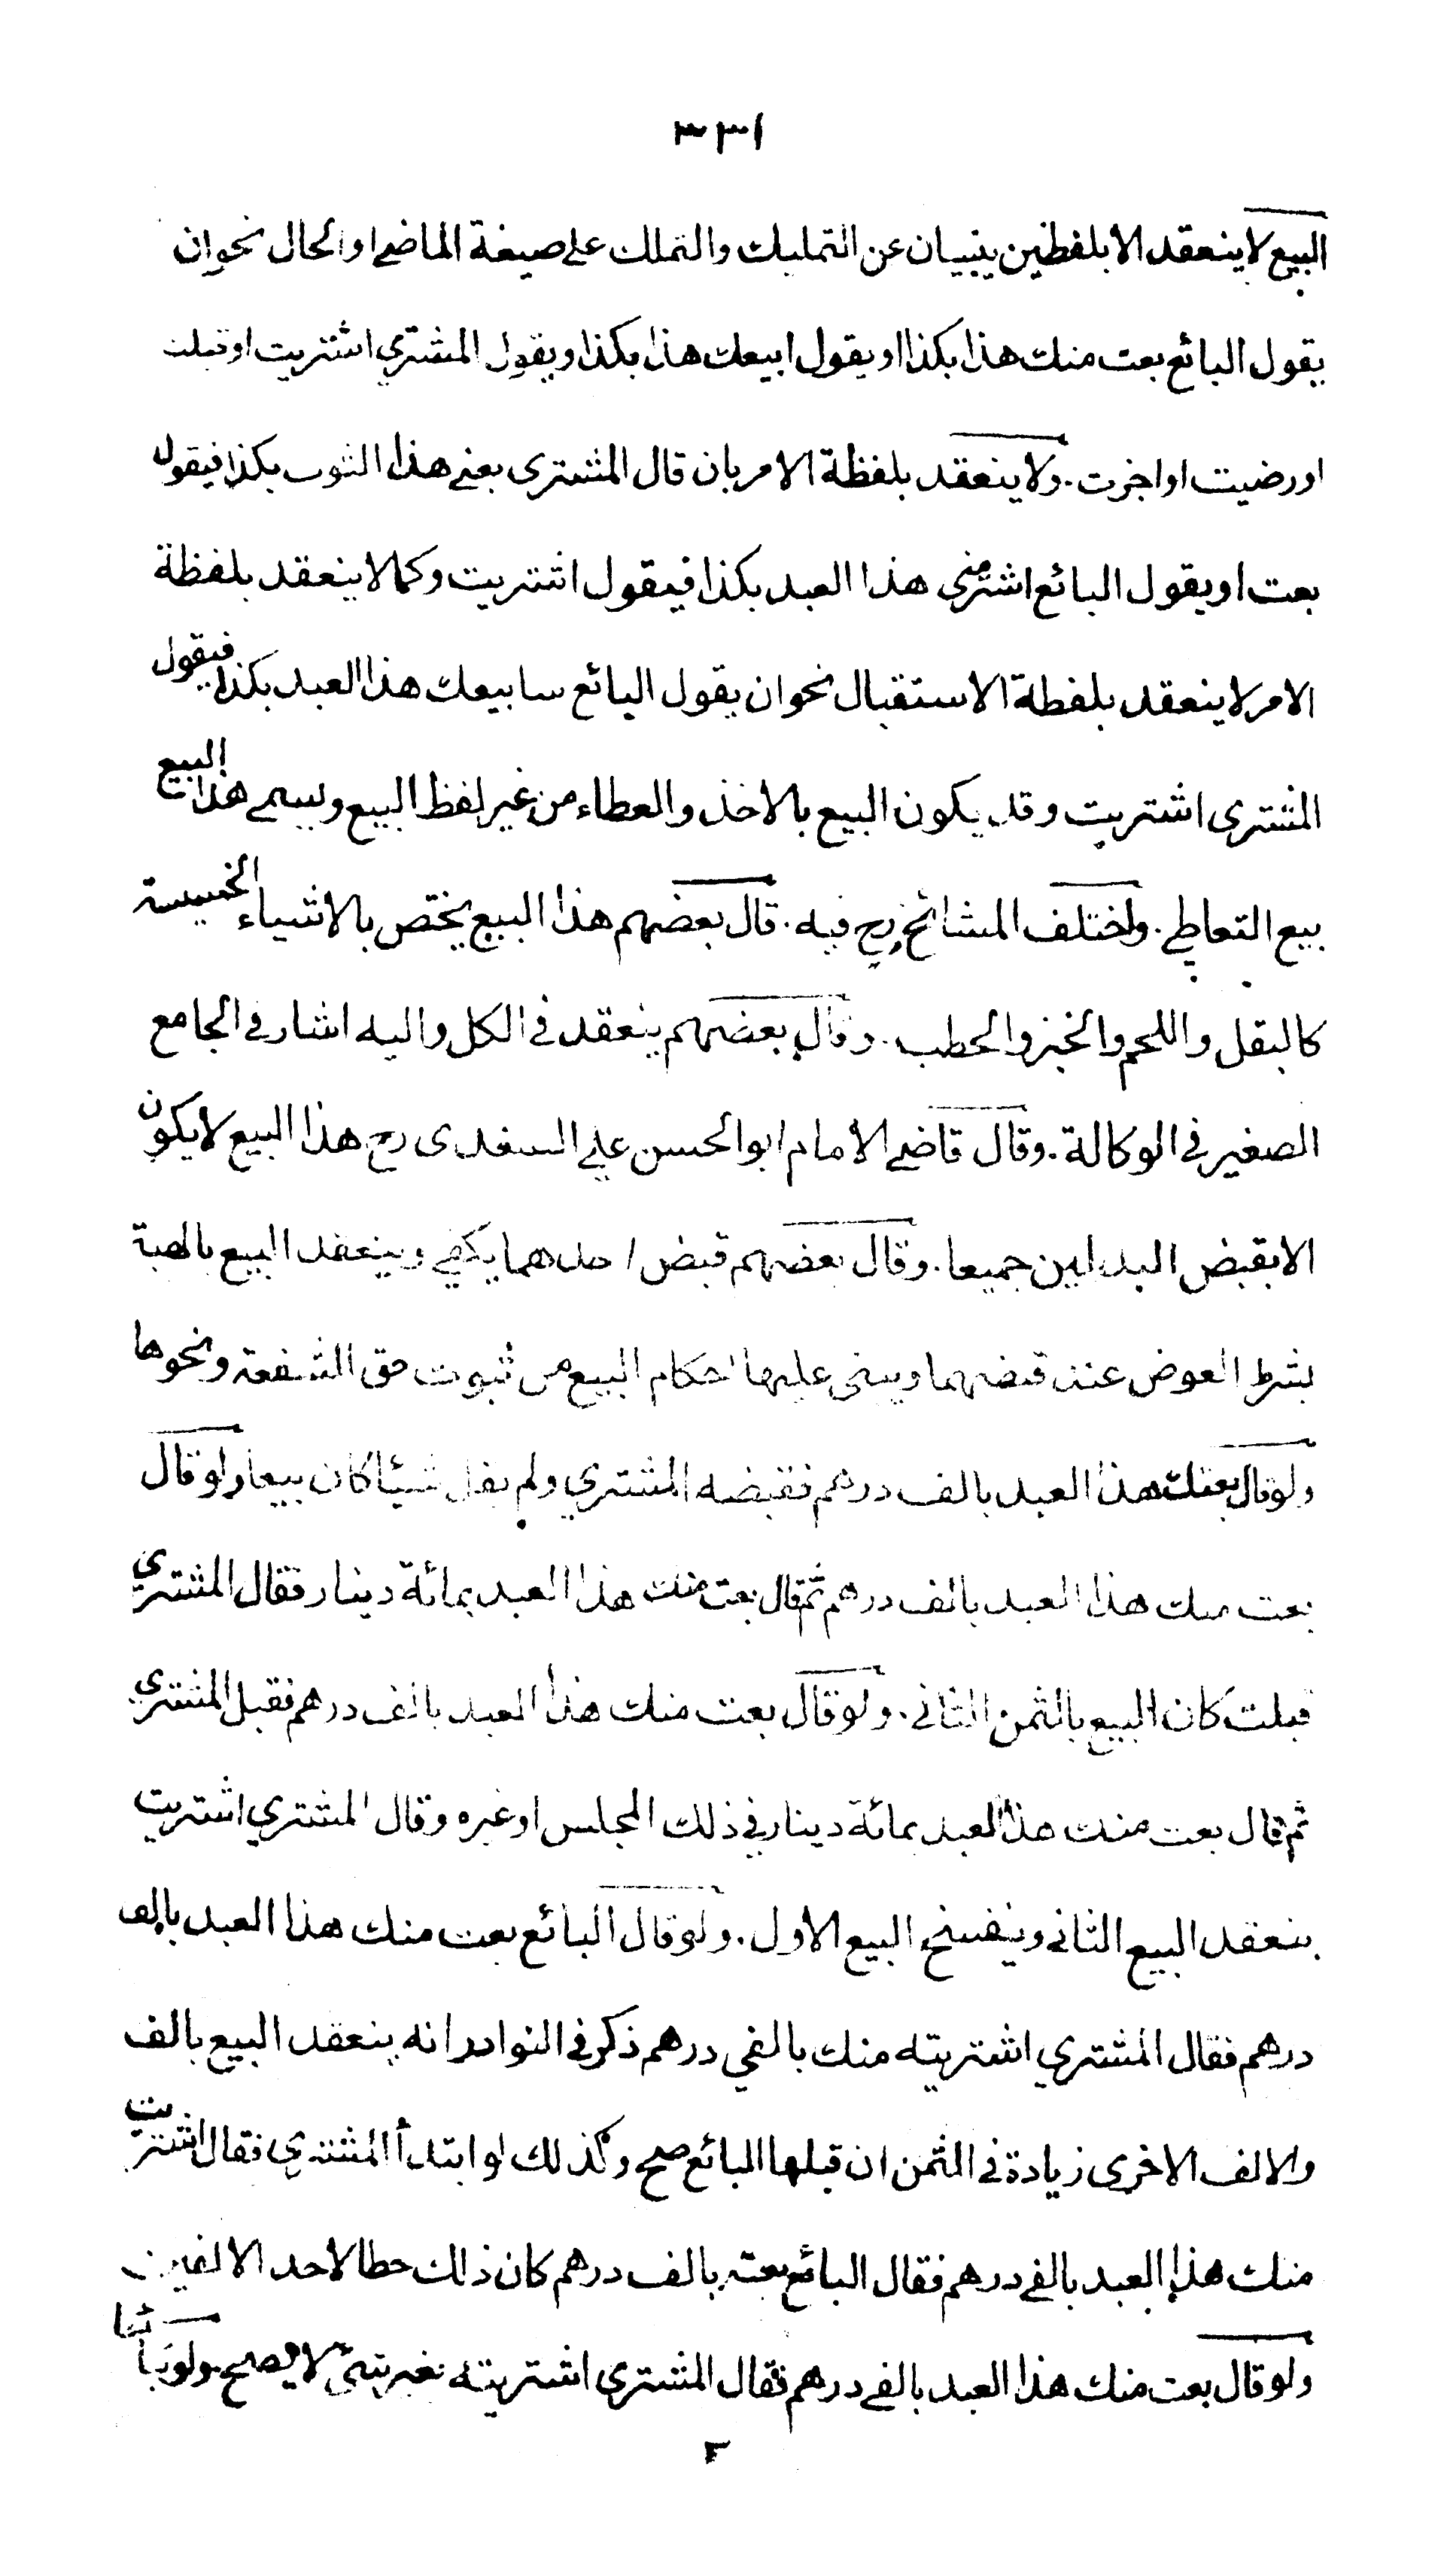 ٣٣١
البيع لا ينعقد الا بلفظين ينبيان عن التمليك والتملك على صيغة الماضي او الحال نحو ان
يقول البائع بعت منك هذا بكذا او يقول ابيعك هذا بكذا ويقول المشتري اشتريت او قبلت
او رضيت او اجزت . ولا ينعقد بلفظة الامر بان قال المشترى بعني هذا الثوب بكذا فيقول
بعت او يقول البائع اشتر مني هذا العبد بكذا فيقول اشتريت وكما لا ينعقد بلفظة
الامر لا ينعقد بلفظة الاستقبال نحو ان يقول البائع سابيعك هذا العبد بكذا فيقول
المشترى اشتريت وقد يكون البيع بالاخذ والعطاء من غير لفظ البيع ويسمى هذا البيع
بيع التعاطي . واختلف المشائخ رح فيه . قال بعضهم هذا البيع يختص بالاشياء الخسيسة
كالبقل واللحم والخبز والحطب . وقال بعضهم ينعقد في الكل واليه اشار في الجامع
الصغير في الوكالة . وقال قاضي الامام ابو الحسن علي السغدى رح هذا البيع لا يكون
الا بقبض البدلين جميعا . وقال بعضهم قبض احدهما يكفي وينعقد البيع بالهبة
بشرط العوض عند قبضهما ويبنى عليها احكام البيع من ثبوت حق الشفعة ونحوها
ولو قال بعتك هذا العبد بالف درهم فقبضه المشتري ولم يقل شيئا كان بيعا ولو قال
بعت منك هذا العبد بالف درهم ثم قال بعت منك هذا العبد بمائة دينار فقال المشتري
قبلت كان البيع بالثمن الثاني . ولو قال بعت منك هذا العبد بالف درهم فقبل المشتري
ثم قال بعت منك هذا العبد بمائة دينار في ذلك المجلس او غيره وقال المشتري اشتريت
ينعقد البيع الثاني وينفسخ البيع الاول . ولو قال البائع بعت منك هذا العبد بالف
درهم فقال المشتري اشتريته منك بالفي درهم ذكر في النوادر انه ينعقد البيع بالف
والالف الاخرى زيادة في الثمن ان قبلها البائع صح وكذلك لو ابتدأ المشتري فقال اشتريت
منك هذا العبد بالفي درهم فقال البائع بعته بالف درهم كان ذلك حطا لاحد الالفين
ولو قال بعت منك هذا العبد بالفي درهم فقال المشترى اشتريته بغير شئ لا يصح . ولو تبا
ئعا
٢